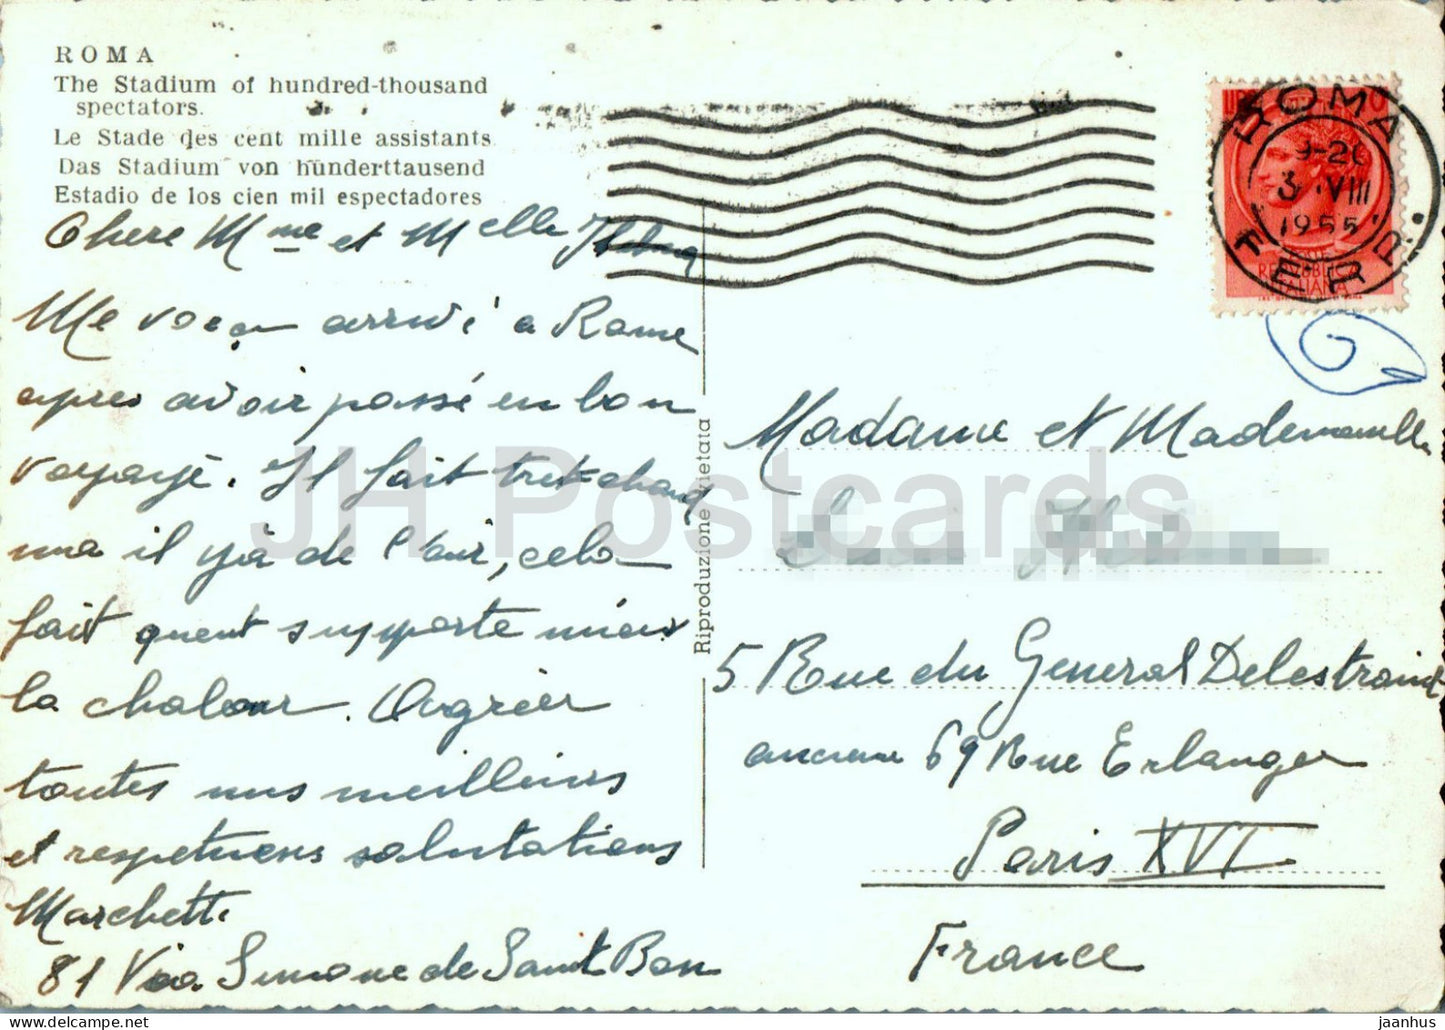 ROMA
The Stadium of hundred-thousand
spectators.
Le Stade des cent mille assistants
Das Stadium von hunderttausend
Estadio de los cien mil espectadores
Chere Mme et Melle
Me voca arrivé a Rome
apres avoir passé en bon
voyagé. Il fait tret chaud
ma il yà de l'air, cela
fait quent supporte mieus
la chaleur. Angréer
toutes mes meilleures
et respetueuses salutations
Marchetti
81 Via Simone de Saint Bon
Riproduzione vietata
LIRE
ROMA
9-20
3 VIII
1955
FERR.
REPVBBLICA
ITALIANA
Madame et Mademoiselle
5 Rue du General Delestraint
ancienne 69 Rue Erlanger
Paris XVI
France
JH Postcards
JH-Postcards.com
jaanhus @ delcampe.net